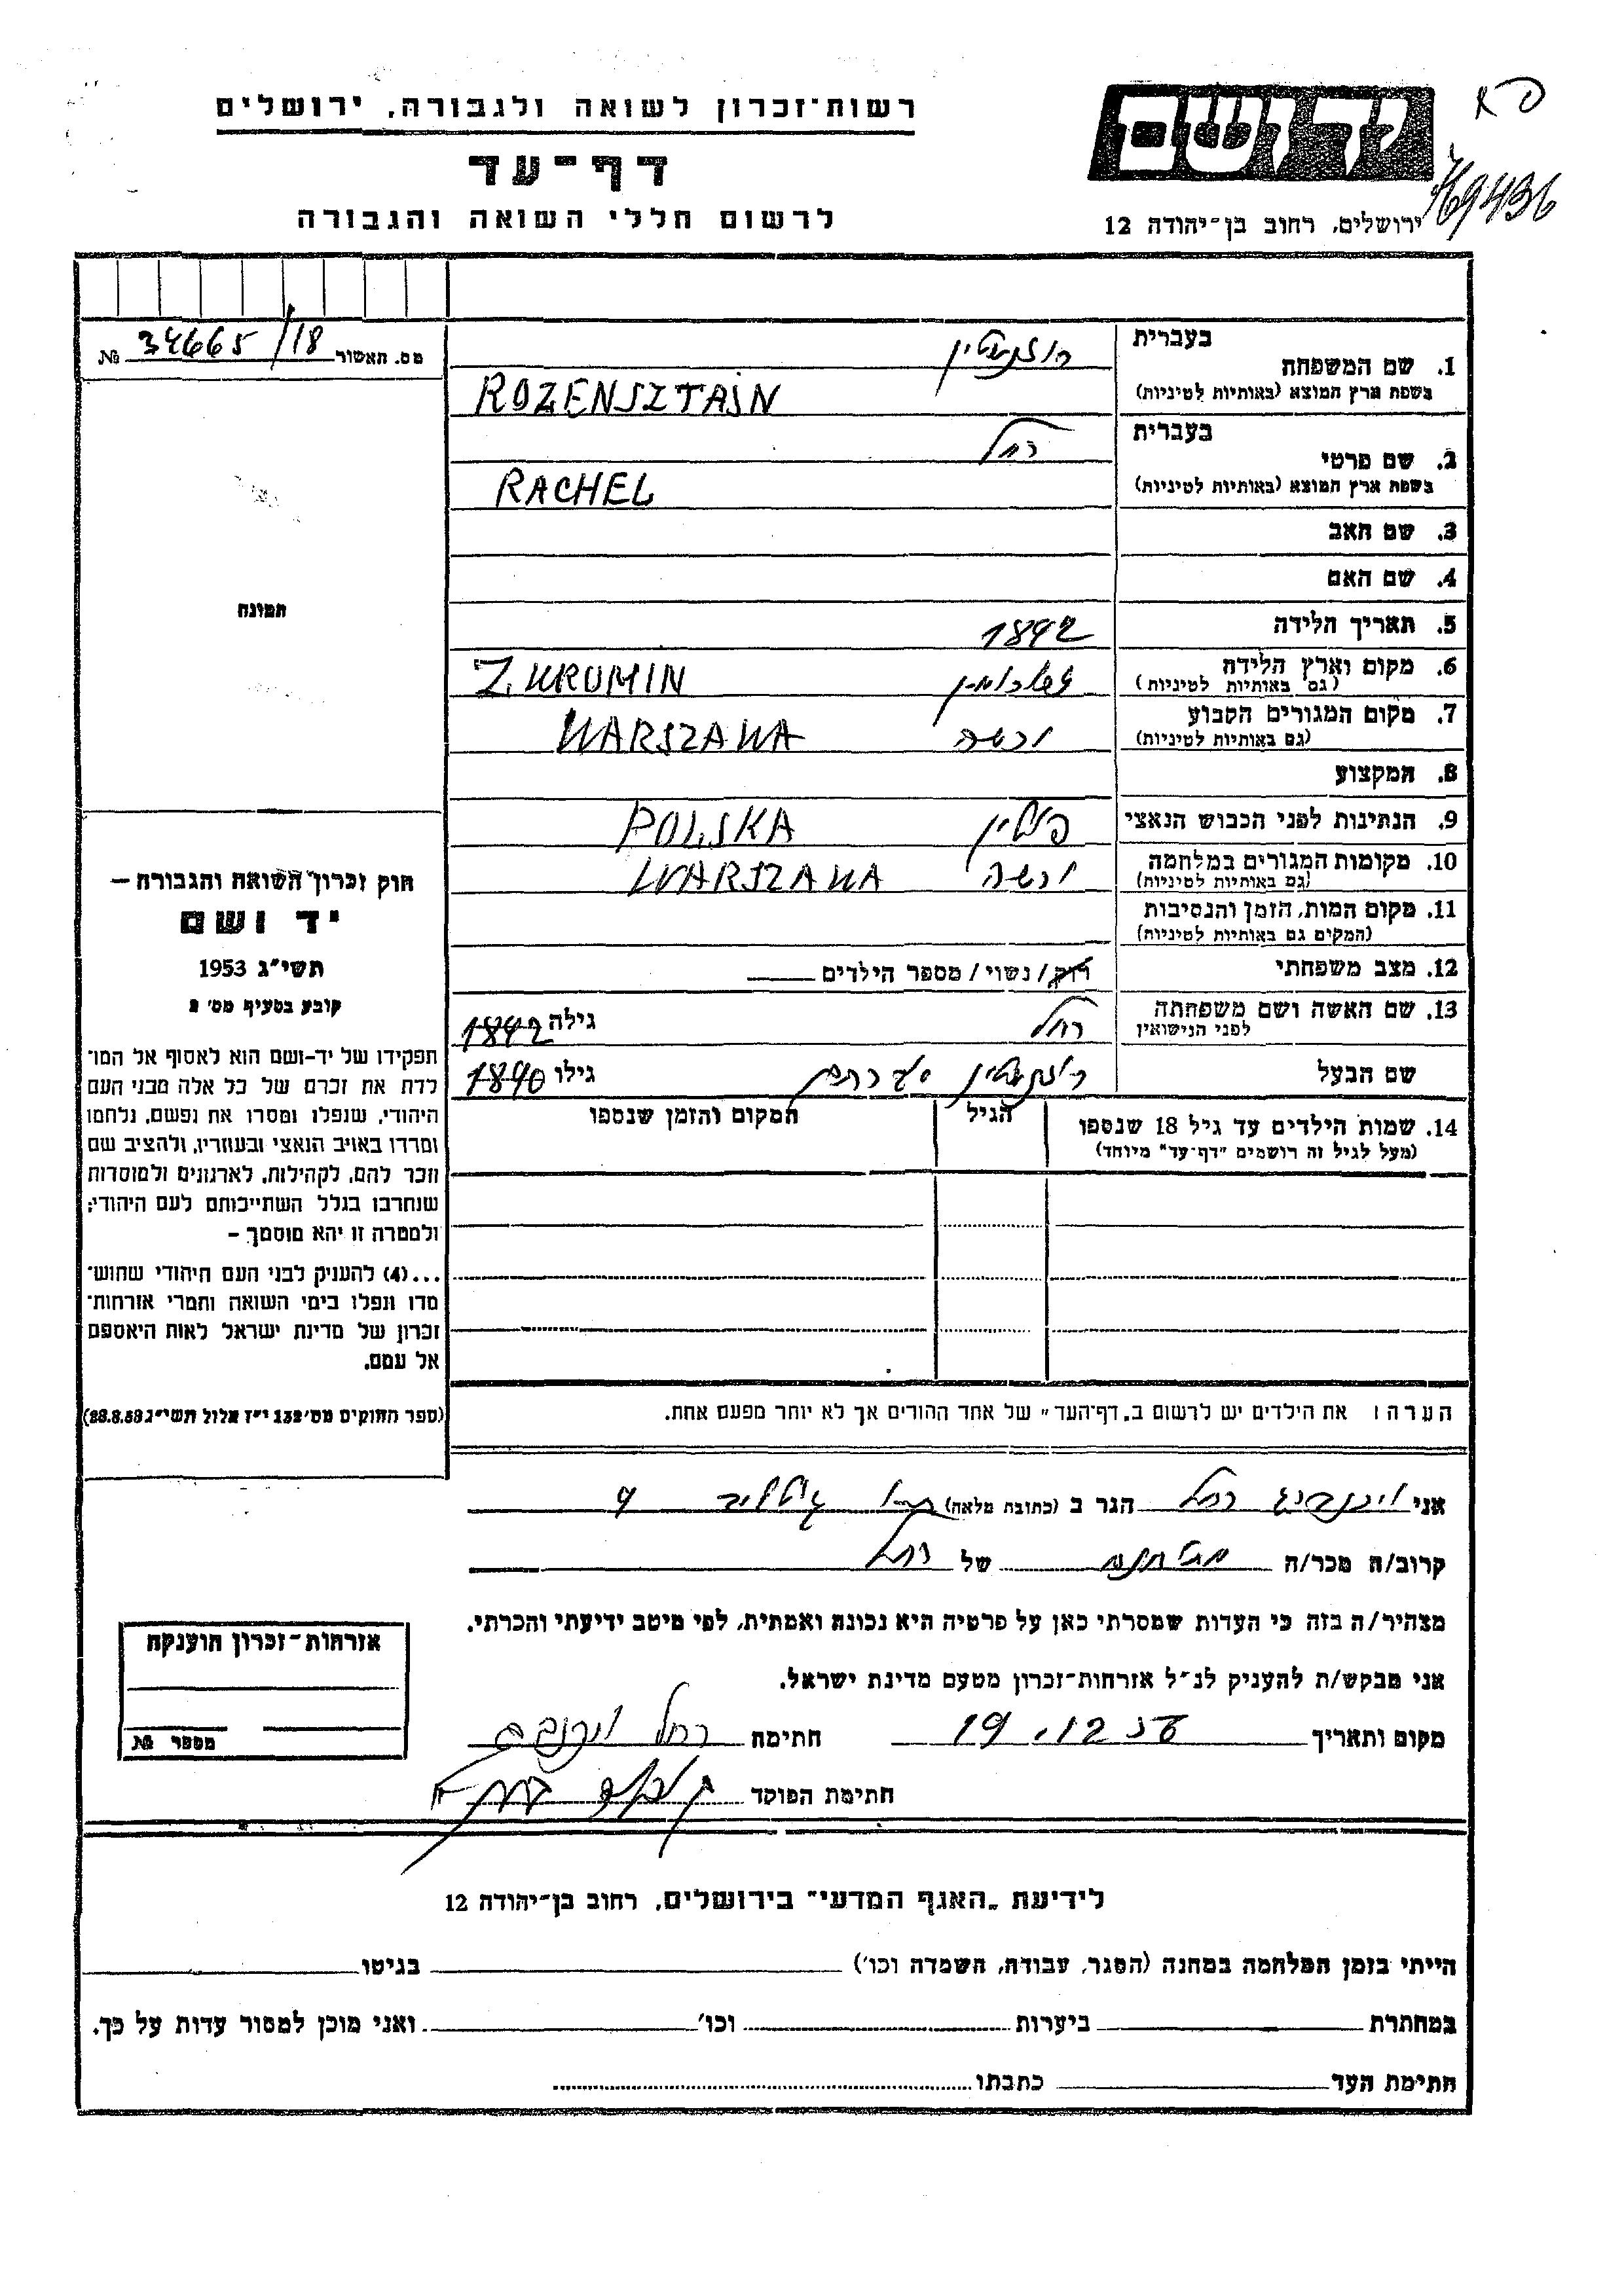 רשות־זכרון לשואה ולגבורה, ירושלים
דף־עד
לרשום חללי השואה והגבורה
ידושם
ירושלים, רחוב בן־יהודה 12
69436
מס. האשור 34665/18 №
1. שם המשפחה
בעברית רוזנשטין
בשפת ארץ המוצא (באותיות לטיניות) ROZENSZTAJN
2. שם פרטי
בעברית רחל
בשפת ארץ המוצא (באותיות לטיניות) RACHEL
3. שם האב
4. שם האם
5. תאריך הלידה 1892
6. מקום וארץ הלידה
(גם באותיות לטיניות) ZUROMIN
7. מקום המגורים הקבוע ורשה WARSZAWA
(גם באותיות לטיניות)
8. המקצוע
9. הנתינות לפני הכבוש הנאצי פולין POLSKA
10. מקומות המגורים במלחמה ורשה WARSZAWA
(גם באותיות לטיניות)
11. מקום המות, הזמן והנסיבות
(המקום גם באותיות לטיניות)
12. מצב משפחתי רוק/נשוי/מספר הילדים
13. שם האשה ושם משפחתה רחל גילה 1892
לפני הנישואין
שם הבעל רוזנשטין אברהם גילו 1890
14. שמות הילדים עד גיל 18 שנספו הגיל המקום והזמן שנספו
(מעל לגיל זה רושמים "דף־עד" מיוחד)
הערה: את הילדים יש לרשום ב"דף־העד" של אחד ההורים אך לא יותר מפעם אחת.
תמונה
חוק זכרון השואה והגבורה —
יד ושם
תשי״ג 1953
קובע בסעיף מס׳ 2
תפקידו של יד-ושם הוא לאסוף אל המו־
לדת את זכרם של כל אלה מבני העם
היהודי, שנפלו ומסרו את נפשם, נלחמו
ומרדו באויב הנאצי ובעוזריו, ולהציב שם
וזכר להם, לקהילות, לארגונים ולמוסדות
שנחרבו בגלל השתייכותם לעם היהודי;
ולמטרה זו יהא מוסמך –
...(4) להעניק לבני העם היהודי שהוש־
מדו ונפלו בימי השואה והמרי אזרחות־
זכרון של מדינת ישראל לאות היאספם
אל עמם.
(ספר החוקים מס׳ 132 י״ז אלול תשי״ג 28.8.53)
אני רחל הגר ב (כתובת מלאה) 9
קרוב/ה מכר/ה של רחל
מצהיר/ה בזה כי העדות שמסרתי כאן על פרטיה היא נכונה ואמתית, לפי מיטב ידיעתי והכרתי.
אני מבקש/ת להעניק לנ״ל אזרחות־זכרון מטעם מדינת ישראל.
מקום ותאריך 19.12 חתימה רחל
חתימת הפוקד
אזרחות־זכרון הוענקה
מספר №
לידיעת „האגף המדעי" בירושלים, רחוב בן־יהודה 12
הייתי בזמן המלחמה במחנה (הסגר, עבודה, השמדה וכו׳) בגיטו
במחתרת ביערות וכו׳ ואני מוכן למסור עדות על כך.
חתימת העד כתבתו